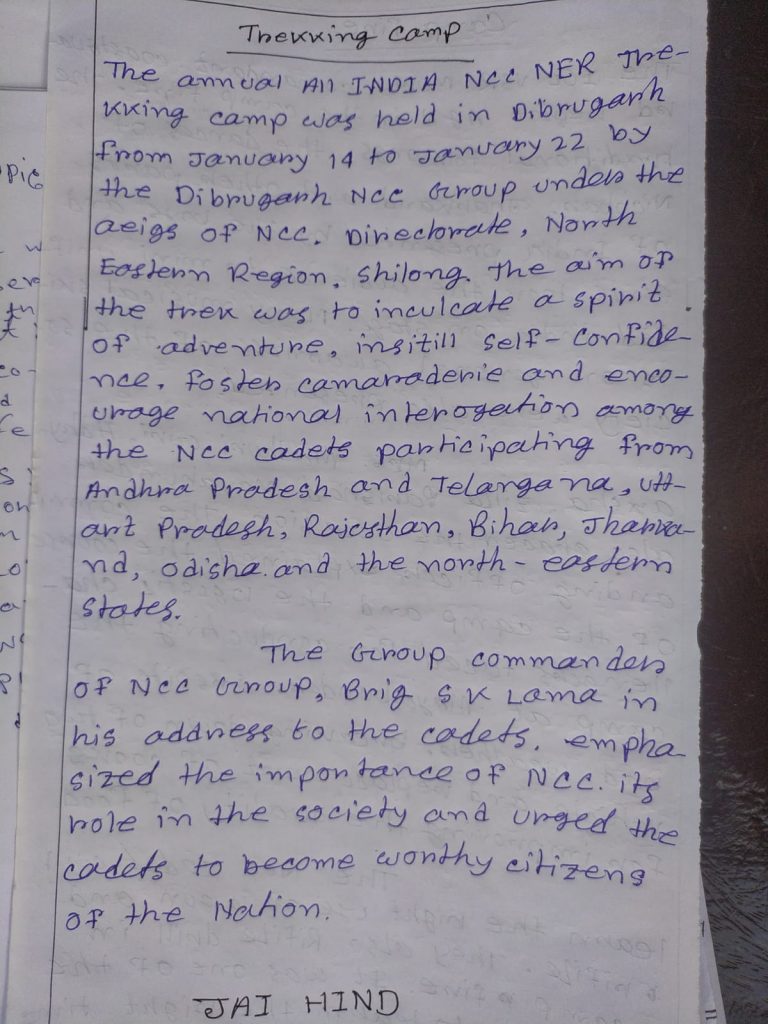 Trekking Camp
The annual All INDIA NCC NER Tre-
kking camp was held in Dibrugarh
from January 14 to January 22 by
the Dibrugarh NCC Group under the
aeigs of NCC. Directorate, North
Eastern Region. Shilong. The aim of
the trek was to inculcate a spirit
of adventure, insitill self-confide-
nce, foster camaraderie and enco-
urage national interogation among
the NCC cadets participating from
Andhra Pradesh and Telangana, utt-
art Pradesh, Rajasthan, Bihar, Jharka-
nd, Odisha. and the north-eastern
states.
The Group commander
of NCC Group, Brig S K Lama in
his address to the cadets. empha
sized the importance of NCC. its
role in the society and urged the
cadets to become worthy citizens
of the Nation.
JAI HIND